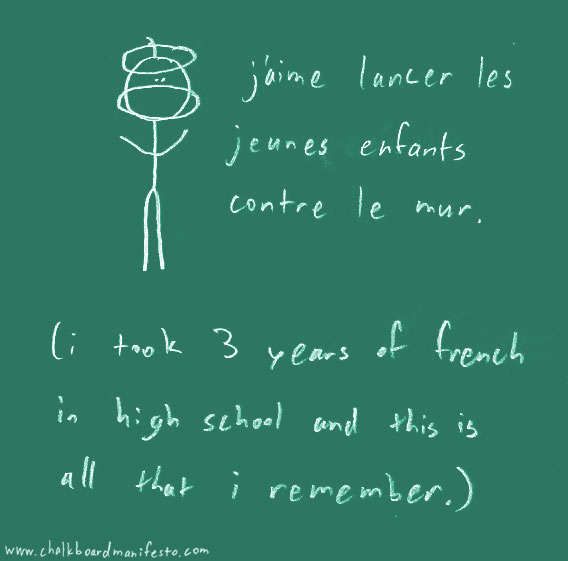 j'aime lancer les
jeunes enfants
contre le mur.
(i took 3 years of french
in high school and this is
all that i remember.)
www.chalkboardmanifesto.com